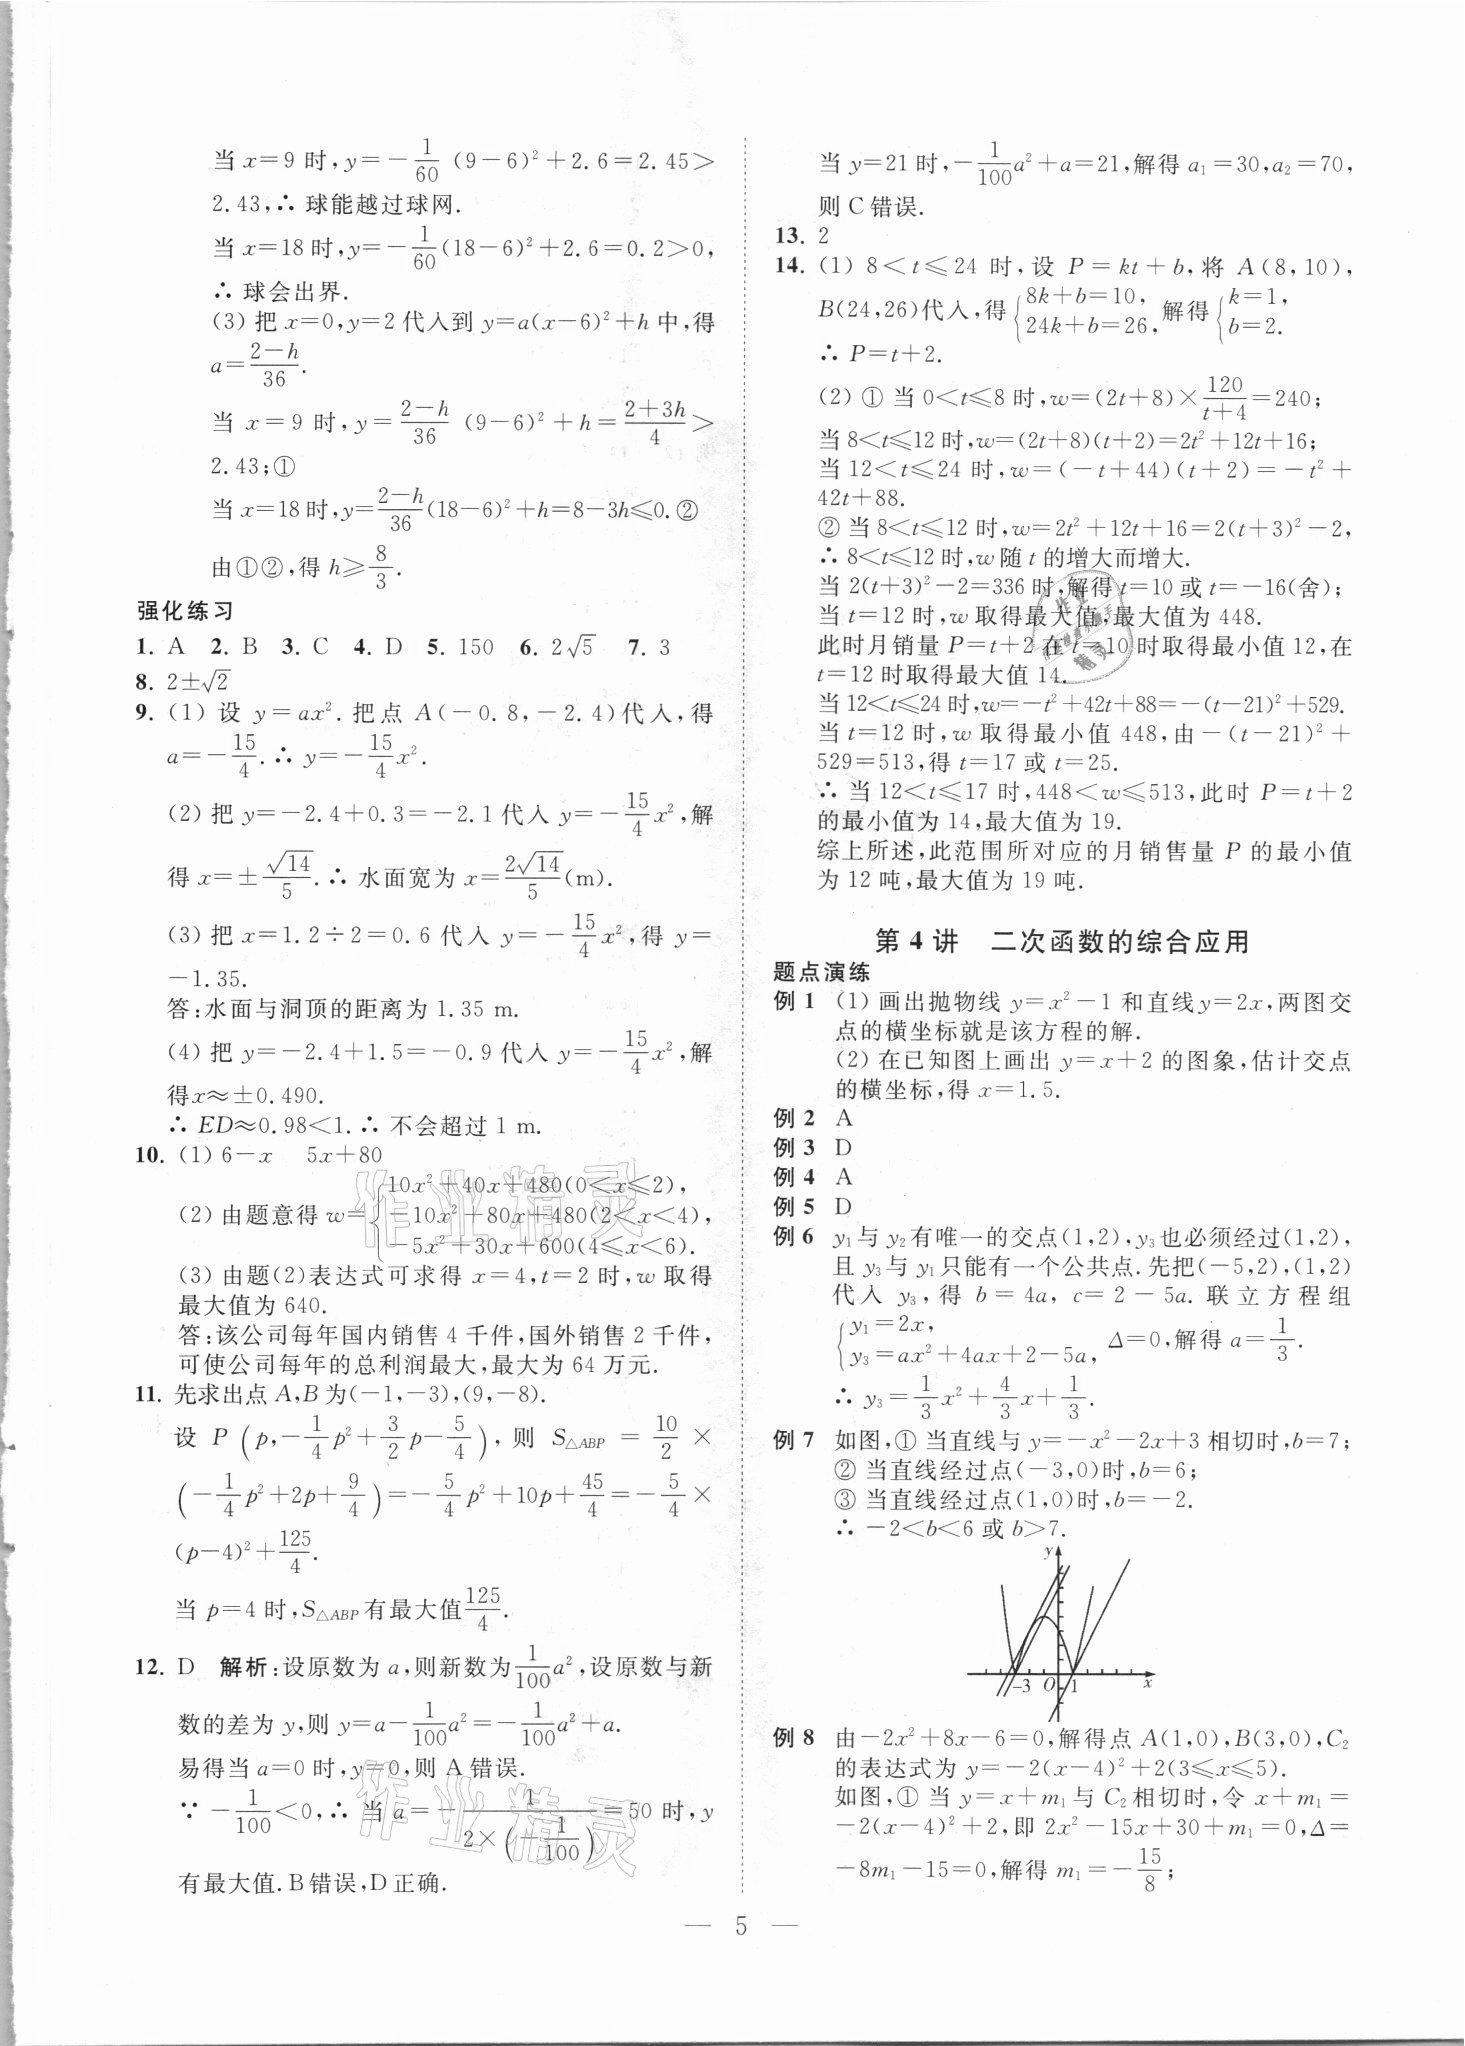 当 x=9 时,y=-1/60 (9-6)²+2.6=2.45>
2.43,∴ 球能越过球网.
当 x=18 时,y=-1/60(18-6)²+2.6=0.2>0,
∴ 球会出界.
(3) 把 x=0,y=2 代入到 y=a(x-6)²+h 中,得
a=(2-h)/36.
当 x=9 时,y=(2-h)/36 (9-6)²+h=(2+3h)/4>
2.43;①
当 x=18 时,y=(2-h)/36(18-6)²+h=8-3h≤0.②
由①②,得 h≥8/3.
强化练习
1. A 2. B 3. C 4. D 5. 150 6. 2√5 7. 3
8. 2±√2
9. (1) 设 y=ax².把点 A(-0.8,-2.4)代入,得
a=-15/4.∴ y=-15/4x².
(2) 把 y=-2.4+0.3=-2.1 代入 y=-15/4x²,解
得 x=±√14/5.∴ 水面宽为 x=2√14/5(m).
(3) 把 x=1.2÷2=0.6 代入 y=-15/4x²,得 y=
-1.35.
答:水面与洞顶的距离为 1.35 m.
(4) 把 y=-2.4+1.5=-0.9 代入 y=-15/4x²,解
得x≈±0.490.
∴ ED≈0.98<1.∴ 不会超过 1 m.
10. (1) 6-x 5x+80
(2) 由题意得 w={10x²+40x+480(0<x≤2),
-10x²+80x+480(2<x<4),
-5x²+30x+600(4≤x<6).
(3) 由题(2)表达式可求得 x=4,t=2 时,w 取得
最大值为 640.
答:该公司每年国内销售 4 千件,国外销售 2 千件,
可使公司每年的总利润最大,最大为 64 万元.
11. 先求出点 A,B 为(-1,-3),(9,-8).
设 P(p,-1/4p²+3/2p-5/4),则 S△ABP=10/2×
(-1/4p²+2p+9/4)=-5/4p²+10p+45/4=-5/4×
(p-4)²+125/4.
当 p=4 时,S△ABP有最大值125/4.
12. D 解析:设原数为 a,则新数为1/100a²,设原数与新
数的差为 y,则 y=a-1/100a²=-1/100a²+a.
易得当 a=0 时,y=0,则 A 错误.
∵ -1/100<0,∴ 当 a=-1/(2×(-1/100))=50 时,y
有最大值.B 错误,D 正确.
当 y=21 时,-1/100a²+a=21,解得 a₁=30,a₂=70,
则 C 错误.
13. 2
14. (1) 8<t≤24 时,设 P=kt+b,将 A(8,10),
B(24,26)代入,得{8k+b=10, 24k+b=26,解得{k=1, b=2.
∴ P=t+2.
(2) ① 当 0<t≤8 时,w=(2t+8)×120/(t+4)=240;
当 8<t≤12 时,w=(2t+8)(t+2)=2t²+12t+16;
当 12<t≤24 时,w=(-t+44)(t+2)=-t²+
42t+88.
② 当 8<t≤12 时,w=2t²+12t+16=2(t+3)²-2,
∴ 8<t≤12 时,w 随 t 的增大而增大.
当 2(t+3)²-2=336 时,解得 t=10 或 t=-16(舍);
当 t=12 时,w 取得最大值,最大值为 448.
此时月销量 P=t+2 在 t=10 时取得最小值 12,在
t=12 时取得最大值 14.
当 12<t≤24 时,w=-t²+42t+88=-(t-21)²+529.
当 t=12 时,w 取得最小值 448,由-(t-21)²+
529=513,得 t=17 或 t=25.
∴ 当 12<t≤17 时,448<w≤513,此时 P=t+2
的最小值为 14,最大值为 19.
综上所述,此范围所对应的月销售量 P 的最小值
为 12 吨,最大值为 19 吨.
第 4 讲 二次函数的综合应用
题点演练
例 1 (1) 画出抛物线 y=x²-1 和直线 y=2x,两图交
点的横坐标就是该方程的解.
(2) 在已知图上画出 y=x+2 的图象,估计交点
的横坐标,得 x=1.5.
例 2 A
例 3 D
例 4 A
例 5 D
例 6 y₁与 y₂有唯一的交点(1,2),y₃也必须经过(1,2),
且 y₃与 y₁只能有一个公共点.先把(-5,2),(1,2)
代入 y₃,得 b=4a,c=2-5a.联立方程组
{y₁=2x, y₃=ax²+4ax+2-5a, Δ=0,解得 a=1/3.
∴ y₃=1/3x²+4/3x+1/3.
例 7 如图,① 当直线与 y=-x²-2x+3 相切时,b=7;
② 当直线经过点(-3,0)时,b=6;
③ 当直线经过点(1,0)时,b=-2.
∴ -2<b<6 或 b>7.
y
-3 O 1 x
例 8 由-2x²+8x-6=0,解得点 A(1,0),B(3,0),C₂
的表达式为 y=-2(x-4)²+2(3≤x≤5).
如图,① 当 y=x+m₁与 C₂相切时,令 x+m₁=
-2(x-4)²+2,即 2x²-15x+30+m₁=0,Δ=
-8m₁-15=0,解得 m₁=-15/8;
— 5 —
作业精灵
作业精灵